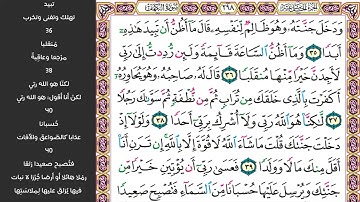 سُورَةُ الكَهْفِ ٢٩٨
وَدَخَلَ جَنَّتَهُۥ وَهُوَ ظَالِمٌ لِّنَفْسِهِۦ قَالَ مَآ أَظُنُّ أَن تَبِيدَ هَٰذِهِۦٓ
أَبَدًا ٣٥ وَمَآ أَظُنُّ ٱلسَّاعَةَ قَآئِمَةً وَلَئِن رُّدِدتُّ إِلَىٰ رَبِّي
لَأَجِدَنَّ خَيْرًا مِّنْهَا مُنقَلَبًا ٣٦ قَالَ لَهُۥ صَاحِبُهُۥ وَهُوَ يُحَاوِرُهُۥٓ
أَكَفَرْتَ بِٱلَّذِي خَلَقَكَ مِن تُرَابٍ ثُمَّ مِن نُّطْفَةٍ ثُمَّ سَوَّىٰكَ رَجُلًا
٣٧ لَّٰكِنَّا۠ هُوَ ٱللَّهُ رَبِّي وَلَآ أُشْرِكُ بِرَبِّيٓ أَحَدًا ٣٨ وَلَوْلَآ إِذْ
دَخَلْتَ جَنَّتَكَ قُلْتَ مَا شَآءَ ٱللَّهُ لَا قُوَّةَ إِلَّا بِٱللَّهِ إِن تَرَنِ أَنَا۠
أَقَلَّ مِنكَ مَالًا وَوَلَدًا ٣٩ فَعَسَىٰ رَبِّيٓ أَن يُؤْتِيَنِ خَيْرًا مِّن
جَنَّتِكَ وَيُرْسِلَ عَلَيْهَا حُسْبَانًا مِّنَ ٱلسَّمَآءِ فَتُصْبِحَ صَعِيدًا
تبيد
تهلك وتفنى وتخرب
36
منقلبا
مرجعا وعاقبة
38
لكنا هو الله ربي
لكن أنا أقول: هو الله ربي
40
حسبانا
عذابا كالصواعق والآفات
40
فتصبح صعيدا زلقا
رملا هائلا أو أرضا جُرُزا لا نبات
فيها يُزلق عليها لملاستها